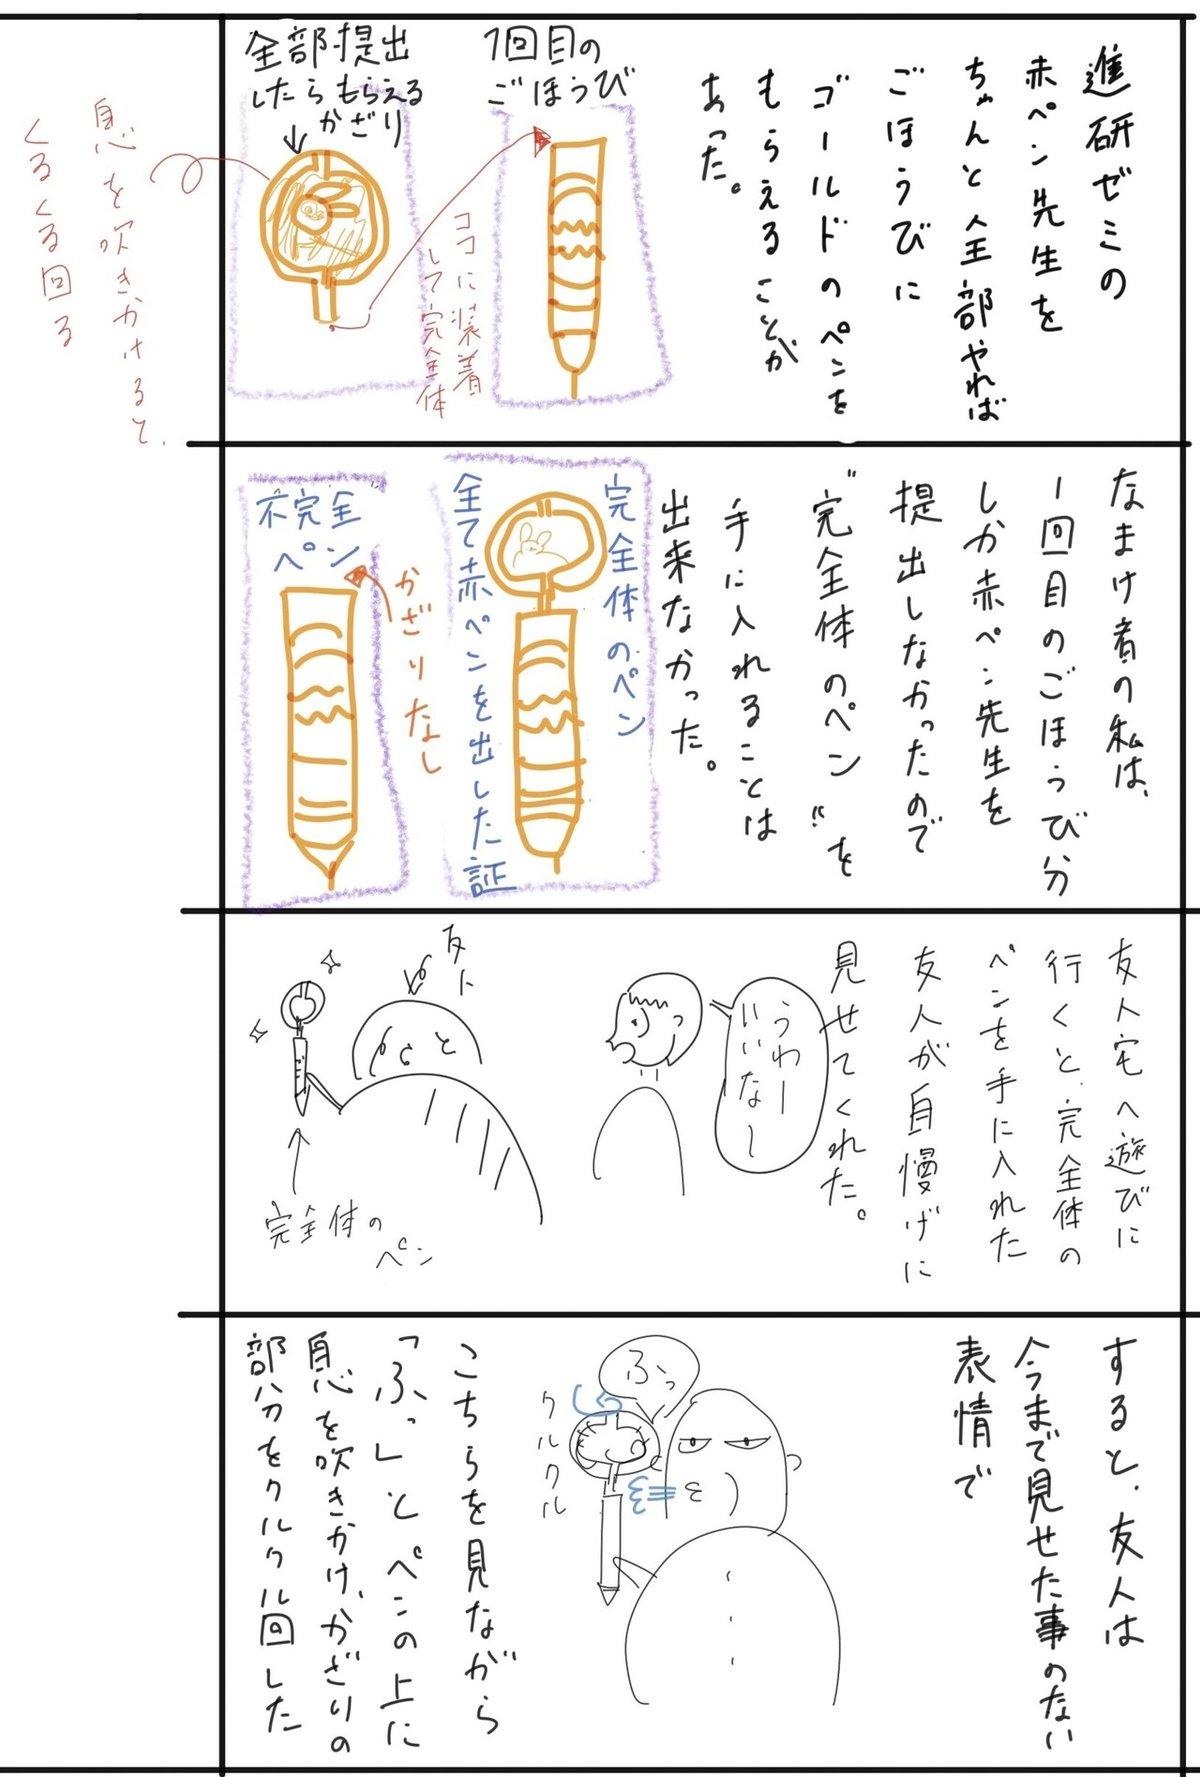 進研ゼミの
赤ペン先生を
ちゃんと全部やれば
ごほうびに
ゴールドのペンを
もらえることが
あった。
1回目の
ごほうび
全部提出
したらもらえる
かざり
ココに装着
して完全体
息を吹きかけると、
くるくる回る
なまけ者の私は、
1回目のごほうび分
しか赤ペン先生を
提出しなかったので
"完全体のペン"を
手に入れることは
出来なかった。
完全体のペン
全て赤ペンを出した証
かざりなし
不完全
ペン
友人宅へ遊びに
行くと、完全体の
ペンを手に入れた
友人が自慢げに
見せてくれた。
うわー
いいなー
友人
完全体の
ペン
すると、友人は
今まで見せた事のない
表情で
ふっ
クルクル
こちらを見ながら
「ふっ」とペンの上に
息を吹きかけ、かざりの
部分をクルクル回した